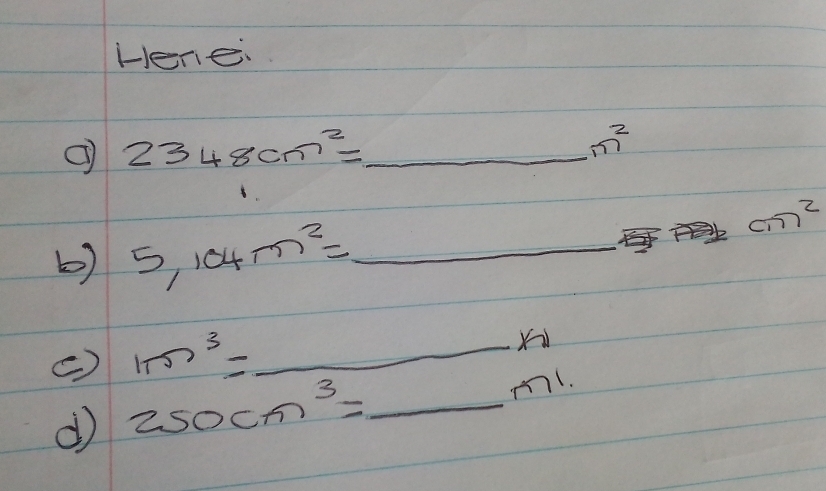 Herlei.
a) 2348cm² = ________ m²
b) 5,104m² = ________ cm²
c) 1m³ = ________ kl
d) 250cm³ = ________ ml.